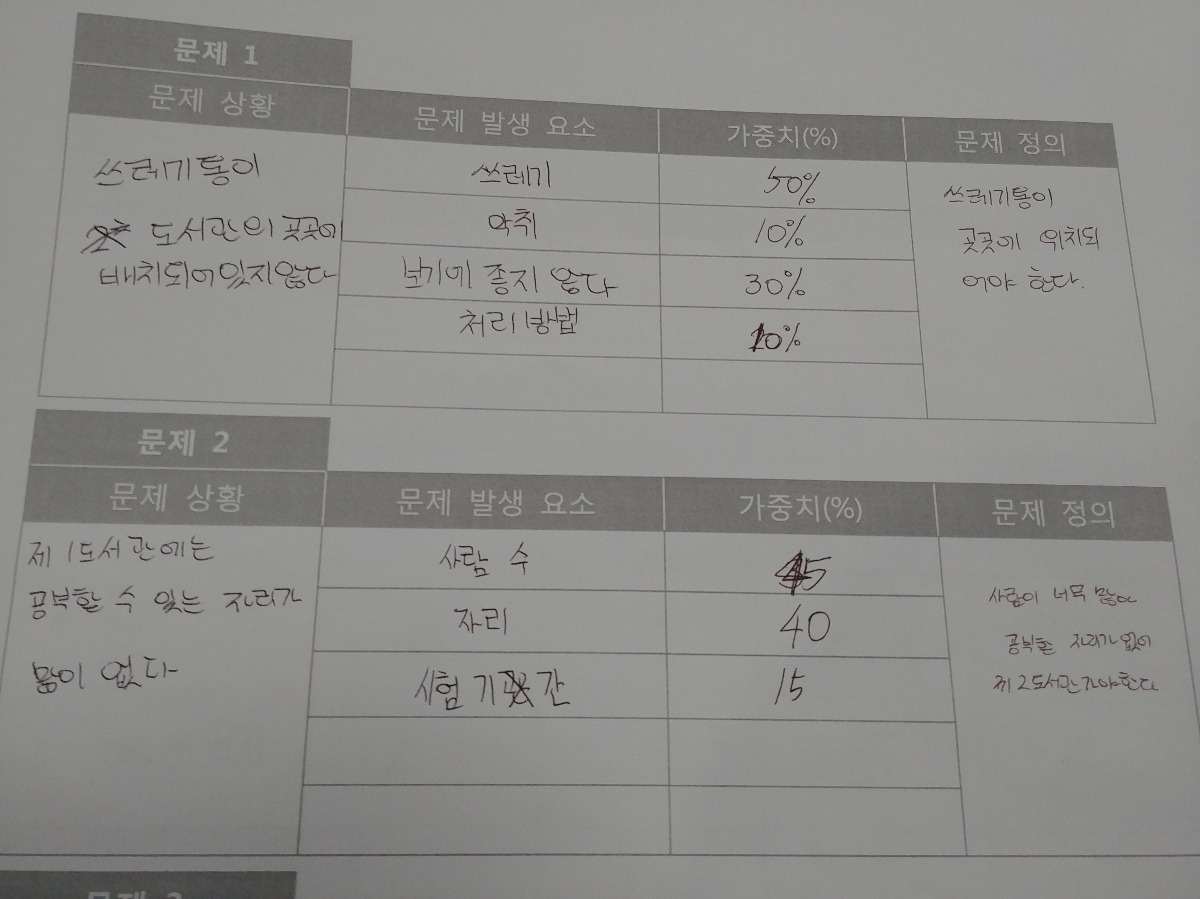 문제 1
문제 상황 문제 발생 요소 가중치(%) 문제 정의
쓰레기통이
도서관의 곳곳이
배치되어있지않다
쓰레기 50%
악취 10%
보기에 좋지 않다 30%
처리방법 10%
쓰레기통이
곳곳에 위치되
어야 한다.
문제 2
문제 상황 문제 발생 요소 가중치(%) 문제 정의
제 1도서관에는
공부할 수 있는 자리가
많이 없다
사람 수 45
자리 40
시험 기간 15
사람이 너무 많아
공부할 자리가 없어
제2도서관가야한다